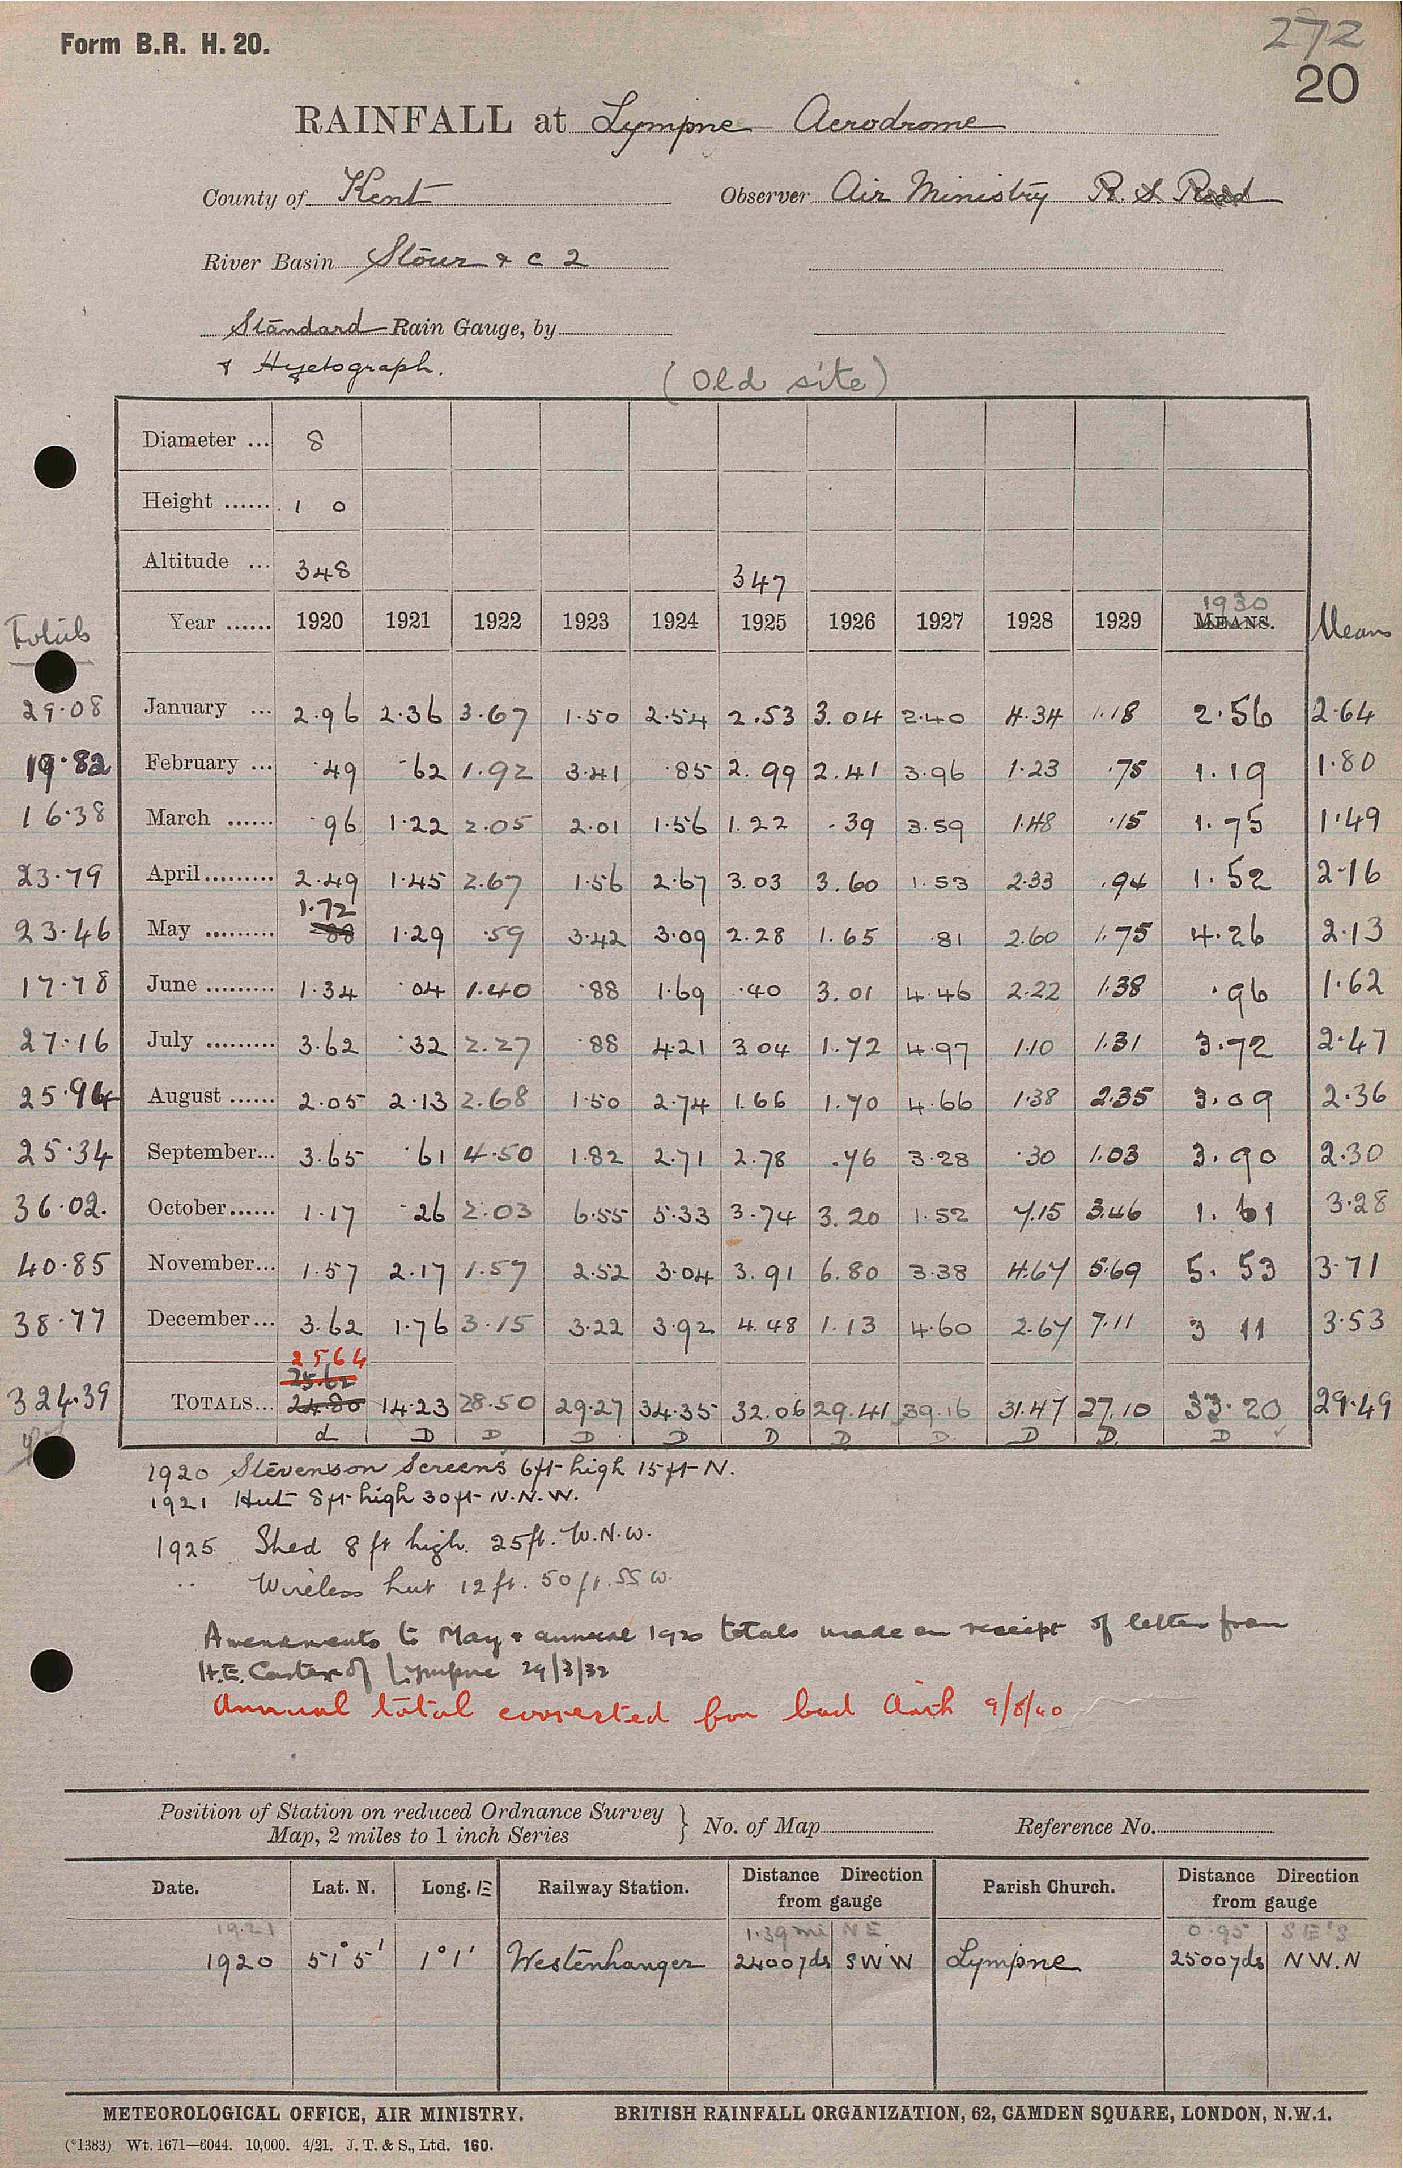 272
Form B.R. H. 20.
20
RAINFALL at Lympne Aerodrome
County of Kent Observer Air Ministry R. S. Read
River Basin Stour & C 2
Standard Rain Gauge, by
& Hyetograph.
(Old site)
Diameter ... 8
Height ...... 1 0
Altitude ... 348 347
Totals Year ...... 1920 1921 1922 1923 1924 1925 1926 1927 1928 1929 1930 MEANS. Means
29.08 January ... 2.96 2.36 3.67 1.50 2.54 2.53 3.04 2.40 4.34 1.18 2.56 2.64
19.82 February ... .49 .62 1.92 3.41 .85 2.99 2.41 3.96 1.23 .75 1.19 1.80
16.38 March ...... .96 1.22 2.05 2.01 1.56 1.22 .39 3.59 1.48 .15 1.75 1.49
23.79 April ......... 2.49 1.45 2.67 1.56 2.67 3.03 3.60 1.53 2.33 .94 1.52 2.16
1.72
23.46 May ......... .88 1.29 .59 3.42 3.09 2.28 1.65 .81 2.60 1.75 4.26 2.13
17.78 June ......... 1.34 .04 1.40 .88 1.69 .40 3.01 4.46 2.22 1.38 .96 1.62
27.16 July ......... 3.62 .32 2.27 .88 4.21 3.04 1.72 4.97 1.10 1.31 3.72 2.47
25.94 August ...... 2.05 2.13 2.68 1.50 2.74 1.66 1.70 4.66 1.38 2.35 3.09 2.36
25.34 September... 3.65 .61 4.50 1.82 2.71 2.78 .76 3.28 .30 1.03 3.90 2.30
36.02. October...... 1.17 .26 2.03 6.55 5.33 3.74 3.20 1.52 7.15 3.46 1.61 3.28
40.85 November... 1.57 2.17 1.57 2.52 3.04 3.91 6.80 3.38 4.67 5.69 5.53 3.71
38.77 December... 3.62 1.76 3.15 3.22 3.92 4.48 1.13 4.60 2.67 7.11 3 11 3.53
25 64
25.62
324.39 TOTALS... 24.80 14.23 28.50 29.27 34.35 32.06 29.41 39.16 31.47 27.10 33.20 29.49
d D D D D D D D D D D
1920 Stevenson Screens 6ft high 15ft N.
1921 Hut 8ft high 30ft N.N.W.
1925 Shed 8 ft high. 25ft. W.N.W.
" Wireless hut 12 ft. 50 ft. SSW.
Amendments to May & annual 1920 totals made on receipt of letter from
H.E. Carter of Lympne 29/3/32
Annual total corrected for bad Arith 9/8/40
Position of Station on reduced Ordnance Survey
Map, 2 miles to 1 inch Series } No. of Map Reference No.
Date. Lat. N. Long. E Railway Station. Distance Direction from gauge Parish Church. Distance Direction from gauge
1921 1.39 mi NE 0.95 SE'S
1920 51° 5' 1° 1' Westenhanger 2400 yds SWW Lympne 2500 yds NW.N
METEOROLOGICAL OFFICE, AIR MINISTRY. BRITISH RAINFALL ORGANIZATION, 62, CAMDEN SQUARE, LONDON, N.W.1.
(*1383) Wt. 1671—6044. 10,000. 4/21. J. T. & S., Ltd. 160.